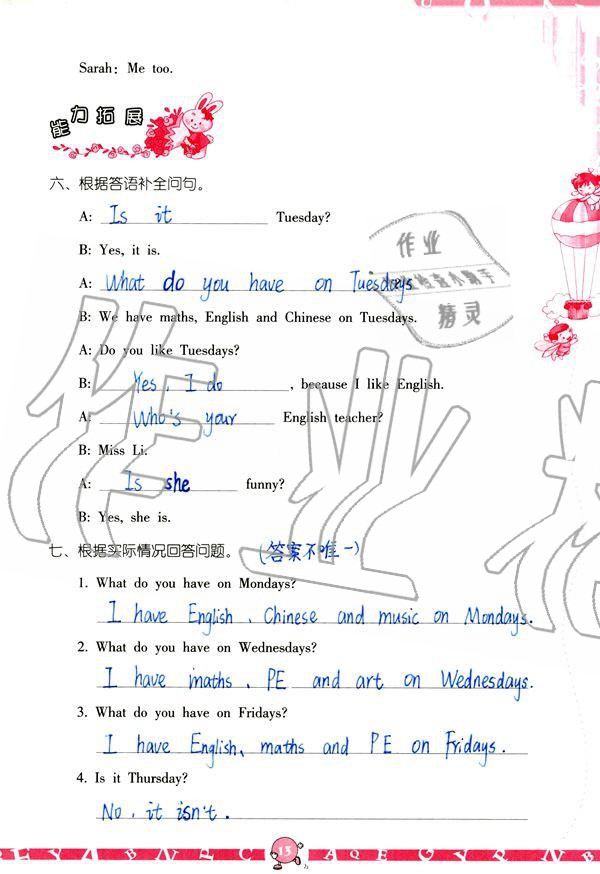 Sarah: Me too.
能力拓展
六、根据答语补全问句。
A: Is it Tuesday?
B: Yes, it is.
A: What do you have on Tuesdays
B: We have maths, English and Chinese on Tuesdays.
A: Do you like Tuesdays?
B: Yes, I do, because I like English.
A: Who's your English teacher?
B: Miss Li.
A: Is she funny?
B: Yes, she is.
七、根据实际情况回答问题。(答案不唯一)
1. What do you have on Mondays?
I have English、Chinese and music on Mondays.
2. What do you have on Wednesdays?
I have maths、PE and art on Wednesdays.
3. What do you have on Fridays?
I have English、maths and PE on Fridays.
4. Is it Thursday?
No, it isn't.
13